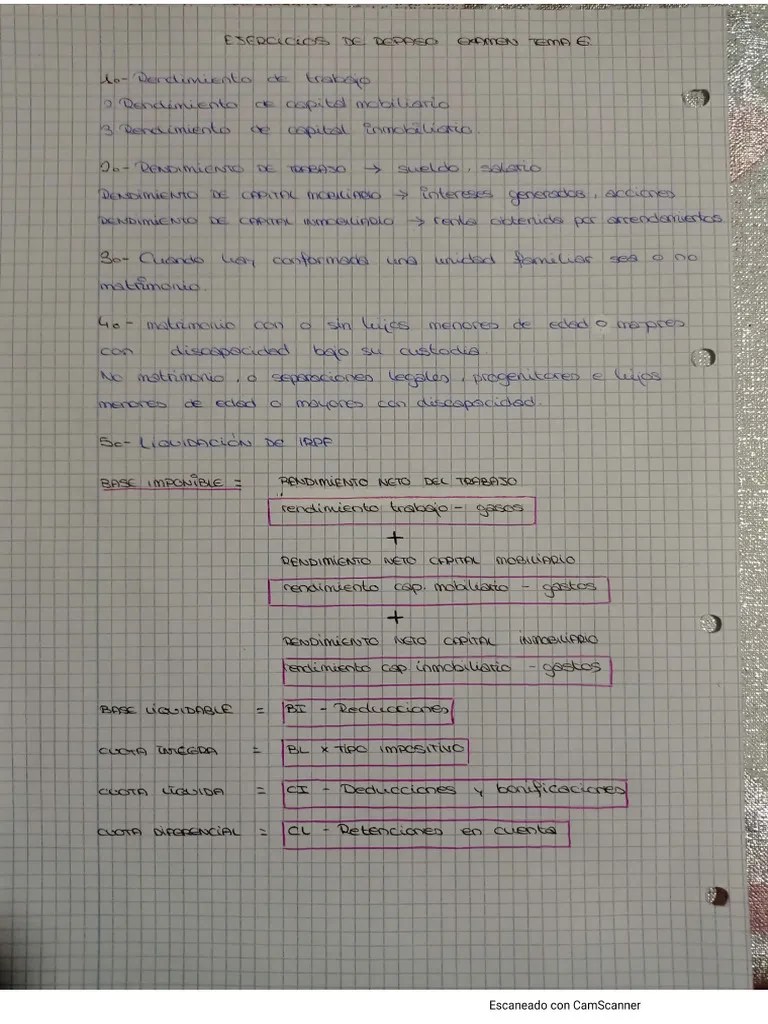 EJERCICIOS DE REPASO EXAMEN TEMA 6
1o- Rendimiento de trabajo
2 Rendimiento de capital mobiliario
3 Rendimiento de capital inmobiliario.
2o- RENDIMIENTO DE TRABAJO → sueldo, salario
RENDIMIENTO DE CAPITAL MOBILIARIO → intereses generados, acciones
RENDIMIENTO DE CAPITAL INMOBILIARIO → renta obtenida por arrendamientos
3o- Cuando hay conformada una unidad familiar sea o no
matrimonio.
4o- matrimonio con o sin hijos menores de edad o mayores
con discapacidad bajo su custodia.
No matrimonio, o separaciones legales, progenitores e hijos
menores de edad o mayores con discapacidad.
5o- LIQUIDACIÓN DE IRPF
BASE IMPONIBLE = RENDIMIENTO NETO DEL TRABAJO
rendimiento trabajo - gasos
+
RENDIMIENTO NETO CAPITAL MOBILIARIO
rendimiento cap. mobiliario - gastos
+
RENDIMIENTO NETO CAPITAL INMOBILIARIO
rendimiento cap inmobiliario - gastos
BASE LIQUIDABLE = BI - Reducciones
CUOTA INTEGRA = BL x TIPO IMPOSITIVO
CUOTA LÍQUIDA = CI - Deducciones y bonificaciones
CUOTA DIFERENCIAL = CL - Retenciones en cuenta
Escaneado con CamScanner